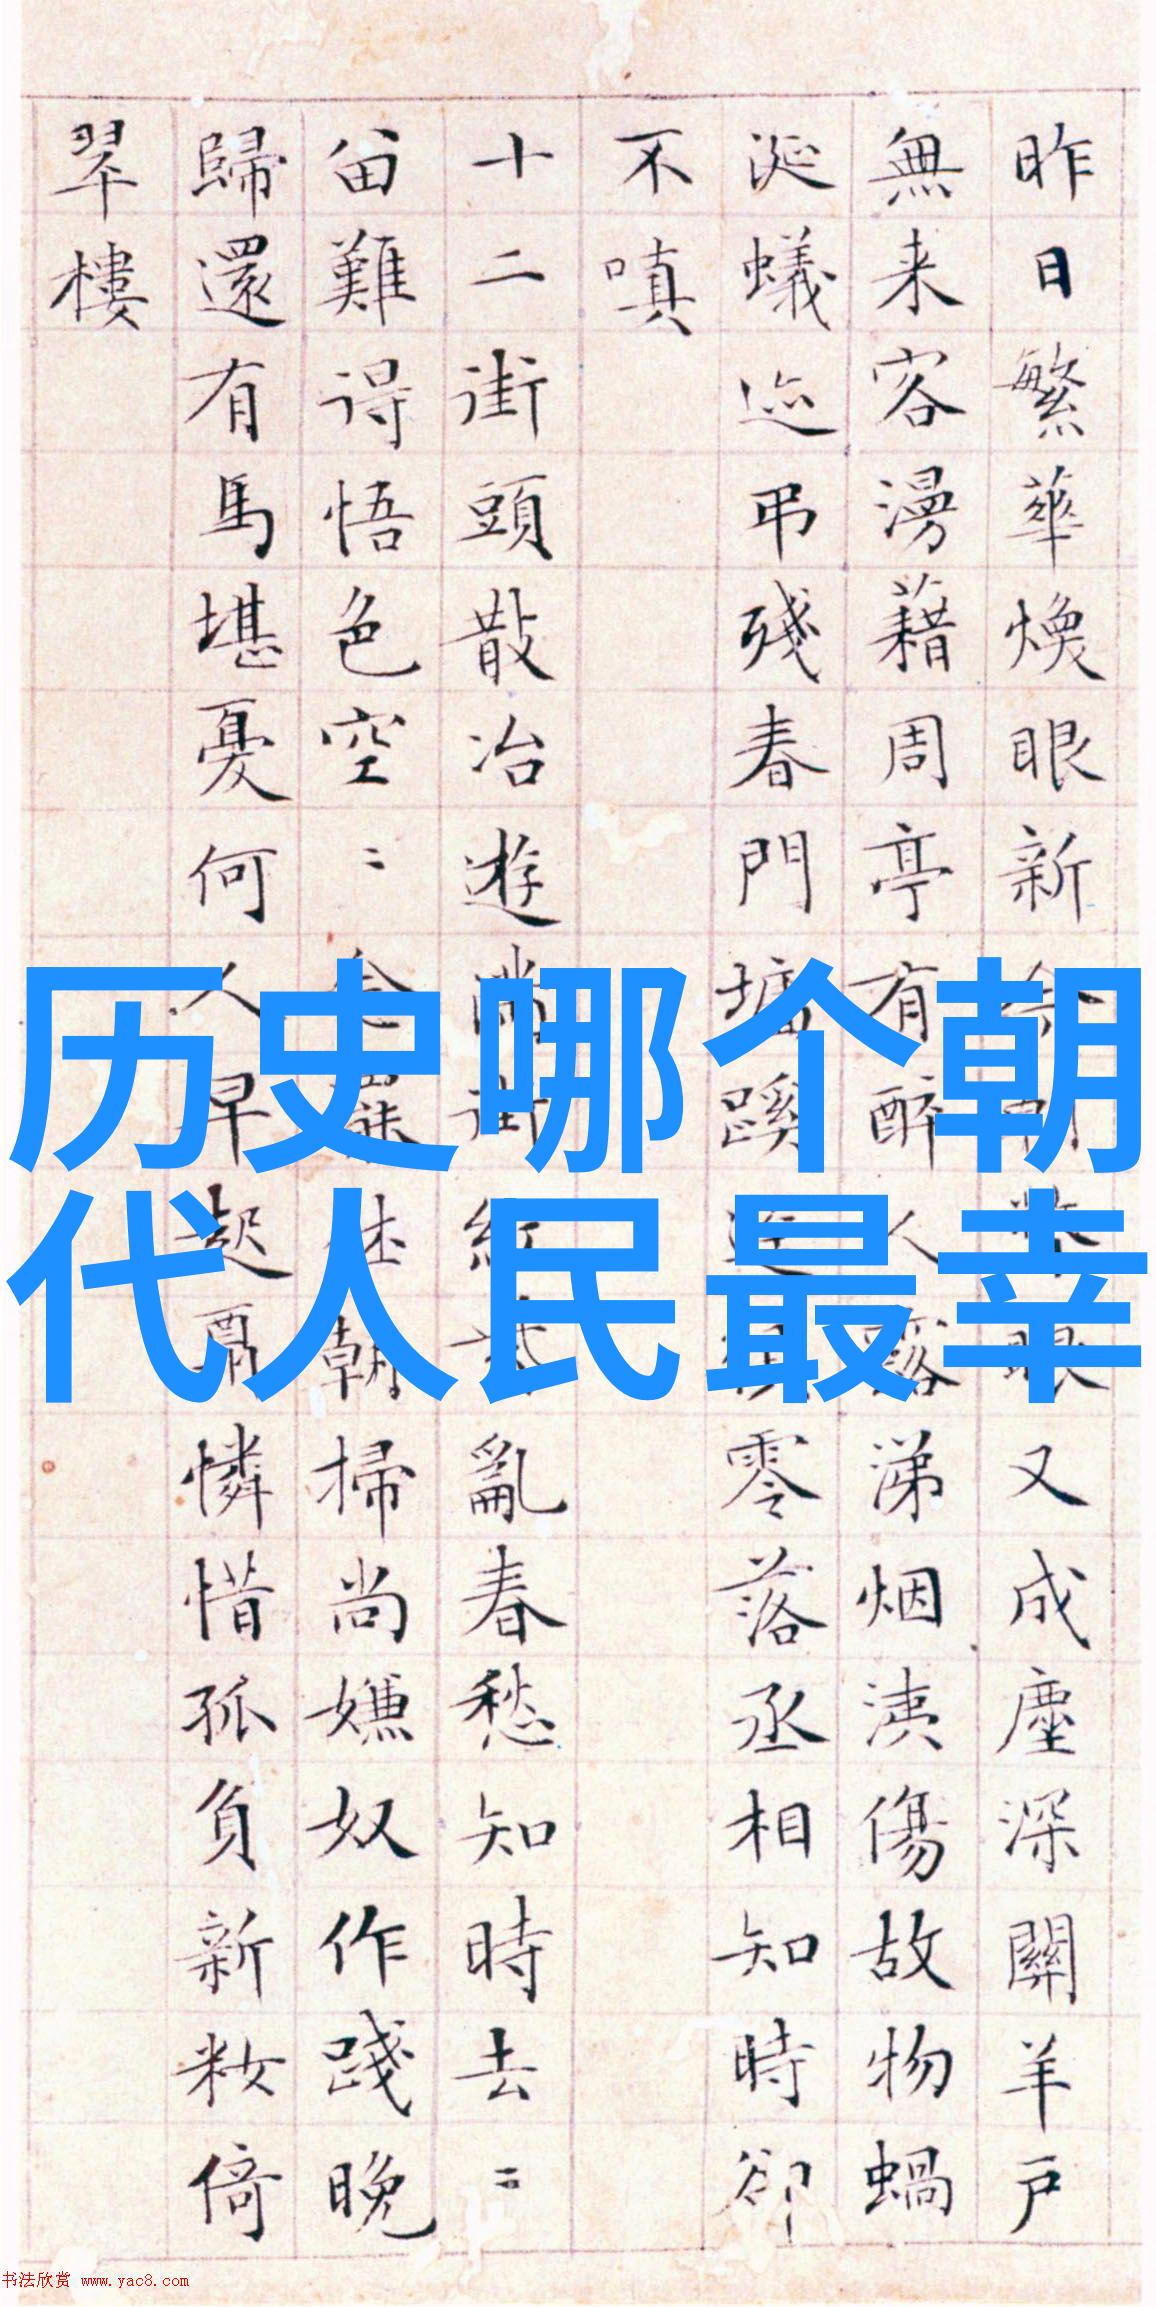 昨日繁華煥眼新
眼又成塵深關羊戶
無来客漫藉周亭有醉人露涕烟洟傷故物蝸
涎蟻迹弔殘春門墉蹊
零落丞相知時卻
不嗔
十二街頭散冶遊
亂春愁知時去〻
留難得悟色空〻
朝掃尚嫌奴作踐晚
歸還有馬堪憂何人早起
憐惜孤負新籹倚
翠樓
历史哪个朝
代人民最幸
书法欣赏 www.yac8.com